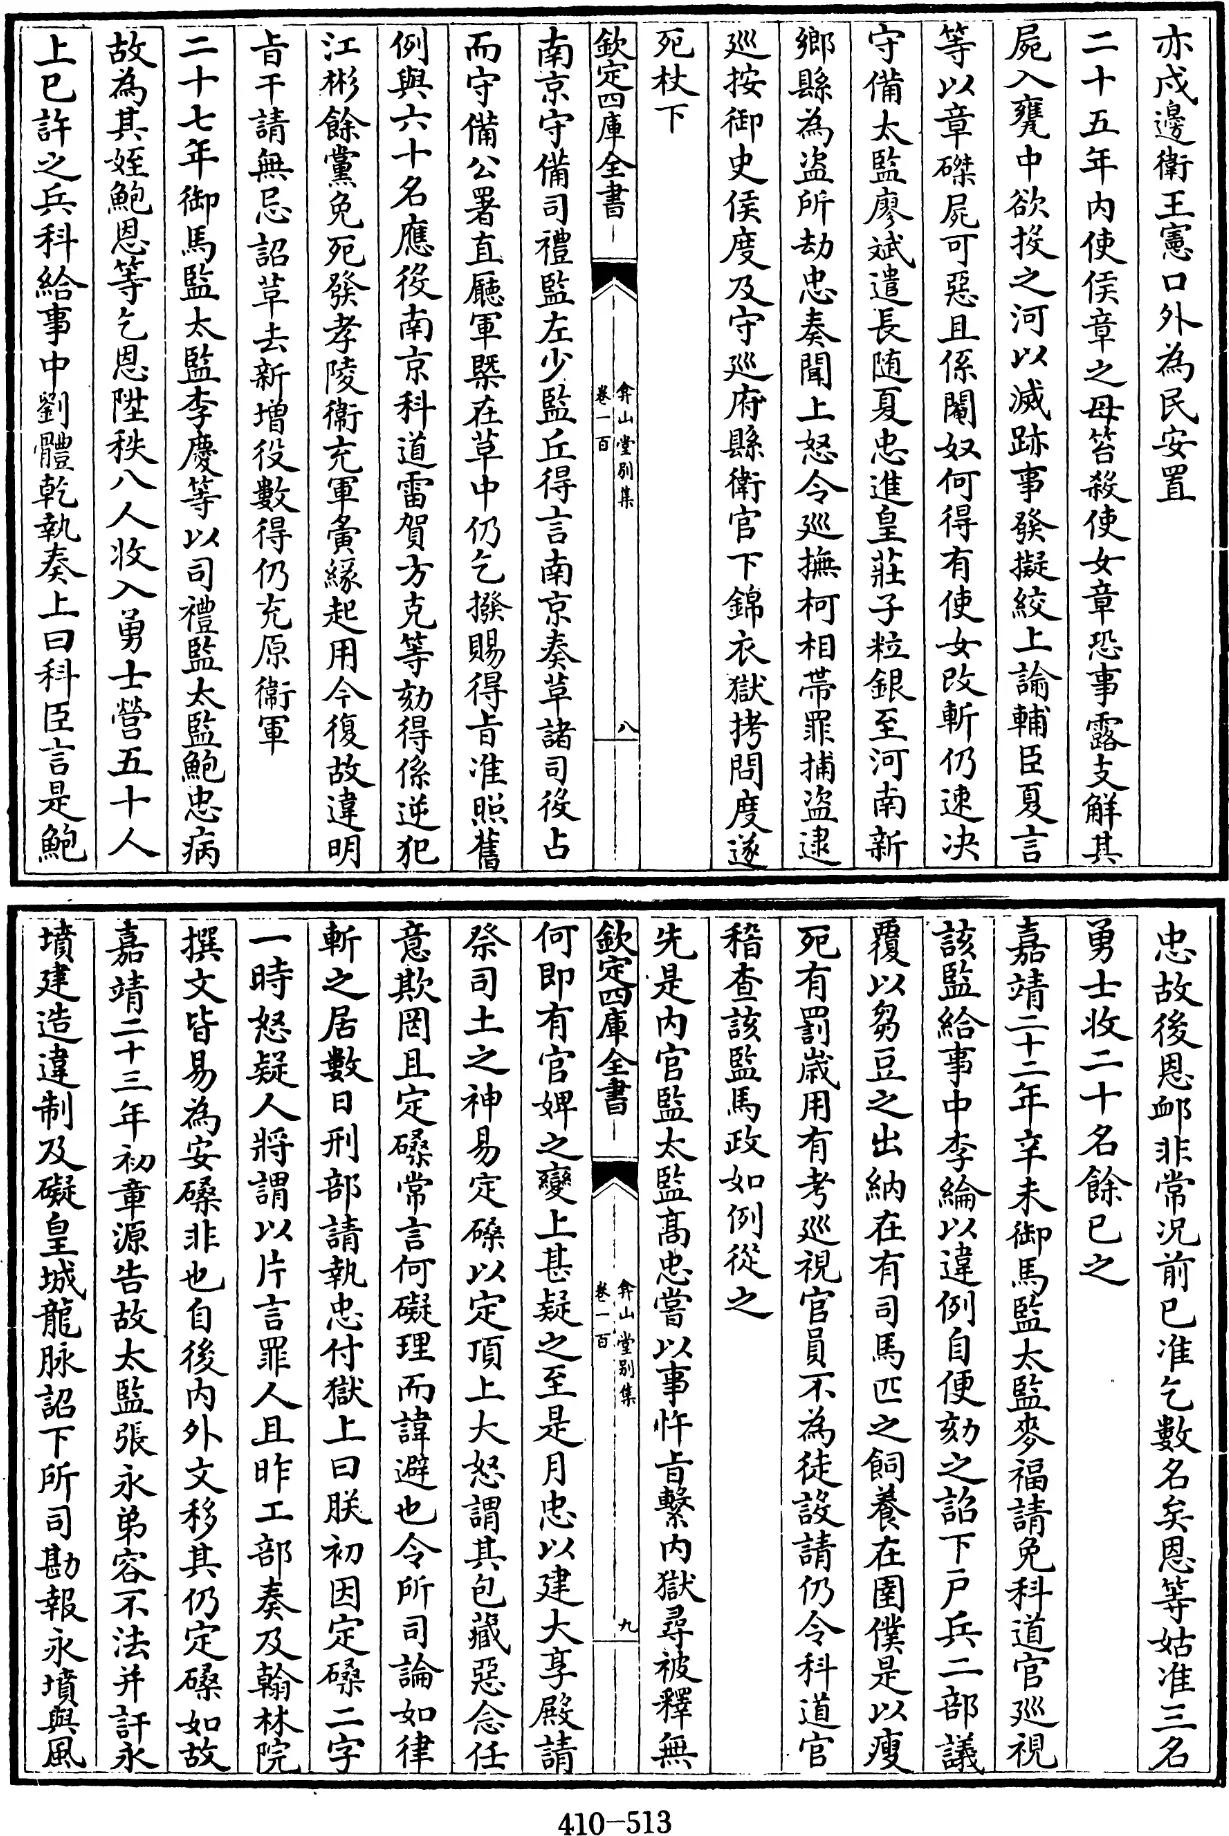 亦戍邊衛王憲口外為民安置
二十五年内使侯章之母笞殺使女章恐事露支解其
屍入甕中欲投之河以滅跡事發擬絞上諭輔臣夏言
等以章磔屍可惡且係閹奴何得有使女改斬仍速决
守備太監廖斌遣長随夏忠進皇莊子粒銀至河南新
鄉縣為盗所劫忠奏聞上怒令巡撫柯相帯罪捕盗逮
巡按御史侯度及守巡府縣衛官下錦衣獄拷問度遂
死杖下
欽定四庫全書
弇山堂别集
卷一百
八
南京守備司禮監左少監丘得言南京奏草諸司役占
而守備公署直廳軍槩在草中仍乞撥賜得㫖准照舊
例與六十名應役南京科道雷賀方克等劾得係逆犯
江彬餘黨免死發孝陵衛充軍夤緣起用今復故違明
㫖干請無忌詔草去新増役數得仍充原衛軍
二十七年御馬監太監李慶等以司禮監太監鮑忠病
故為其姪鮑恩等乞恩陞秩八人收入勇士營五十人
上已許之兵科給事中劉體乾執奏上曰科臣言是鮑
忠故後恩䘏非常况前已准乞數名矣恩等姑准三名
勇士收二十名餘已之
嘉靖二十二年辛未御馬監太監麥福請免科道官巡視
該監給事中李綸以違例自便劾之詔下戸兵二部議
覆以芻豆之出納在有司馬匹之飼養在圉僕是以瘦
死有罰歳用有考巡視官員不為徒設請仍令科道官
稽查該監馬政如例從之
先是内官監太監髙忠嘗以事忤㫖繫内獄尋被釋無
欽定四庫全書
弇山堂别集
卷一百
九
何即有官婢之變上甚疑之至是月忠以建大享殿請
祭司土之神易定磉以定頂上大怒謂其包藏惡念任
意欺罔且定磉常言何礙理而諱避也令所司論如律
斬之居數日刑部請執忠付獄上曰朕初因定磉二字
一時怒疑人將謂以片言罪人且昨工部奏及翰林院
撰文皆易為安磉非也自後内外文移其仍定磉如故
嘉靖二十三年初章源告故太監張永弟容不法并訐永
墳建造違制及礙皇城龍脉詔下所司勘報永墳與風
410-513